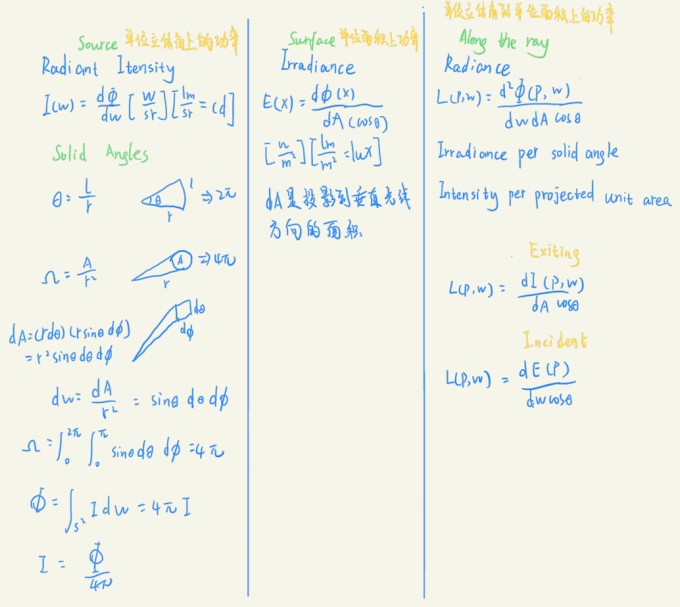 Source 单位立体角上的功率
Radiant Itensity
I(w) = dΦ/dw [w/sr][lm/sr = cd]
Solid Angles
θ = l/r
θ l r ⇒ 2π
Ω = A/r²
A r ⇒ 4π
dθ
dφ
dA = (rdθ)(rsinθ dϕ)
= r² sinθ dθ dϕ
dw = dA/r² = sinθ dθ dϕ
Ω = ∫₀^2π ∫₀^π sinθ dθ dϕ = 4π
Φ = ∫_S² I dw = 4π I
I = Φ/4π
Surface 单位面积上功率
Irradiance
E(x) = dϕ(x)/dA(cosθ)
[w/m²][lm/m² = lux]
dA是投影到垂直光线
方向的面积.
单位立体角到单位面积上的功率
Along the ray
Radiance
L(P,w) = d²Φ(P,w)/dwdA cosθ
Irradiance per solid angle
Intensity per projected unit area
Exiting
L(P,w) = dI(P,w)/dA cosθ
Incident
L(P,w) = dE(P)/dwcosθ